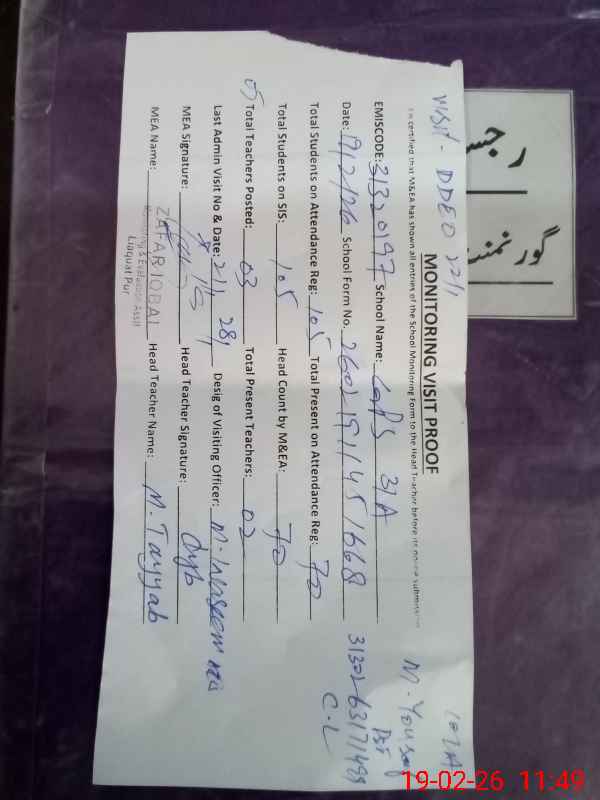 Visit - DDEO 22/1
MONITORING VISIT PROOF
It is certified that M&EA has shown all entries of the School Monitoring Form to the Head Teacher before its online submission
EMISCODE: 31320197 School Name: GPS 31A
Date: 19/2/26 School Form No. 26021911451668
Total Students on Attendance Reg: 105 Total Present on Attendance Reg: 70
Total Students on SIS: 105 Head Count by M&EA: 70
Total Teachers Posted: 03 Total Present Teachers: 02
Last Admin Visit No & Date: 2/1 28/1 Desig of Visiting Officer: M. Waseem
MEA Signature: Head Teacher Signature:
MEA Name: ZAFAR IQBAL Head Teacher Name: M. Tayyab
Monitoring & Evaluation Assit
Liaquat Pur
M. Yousaf
PST
C.L
گورنمنٹ
19-02-26 11:49